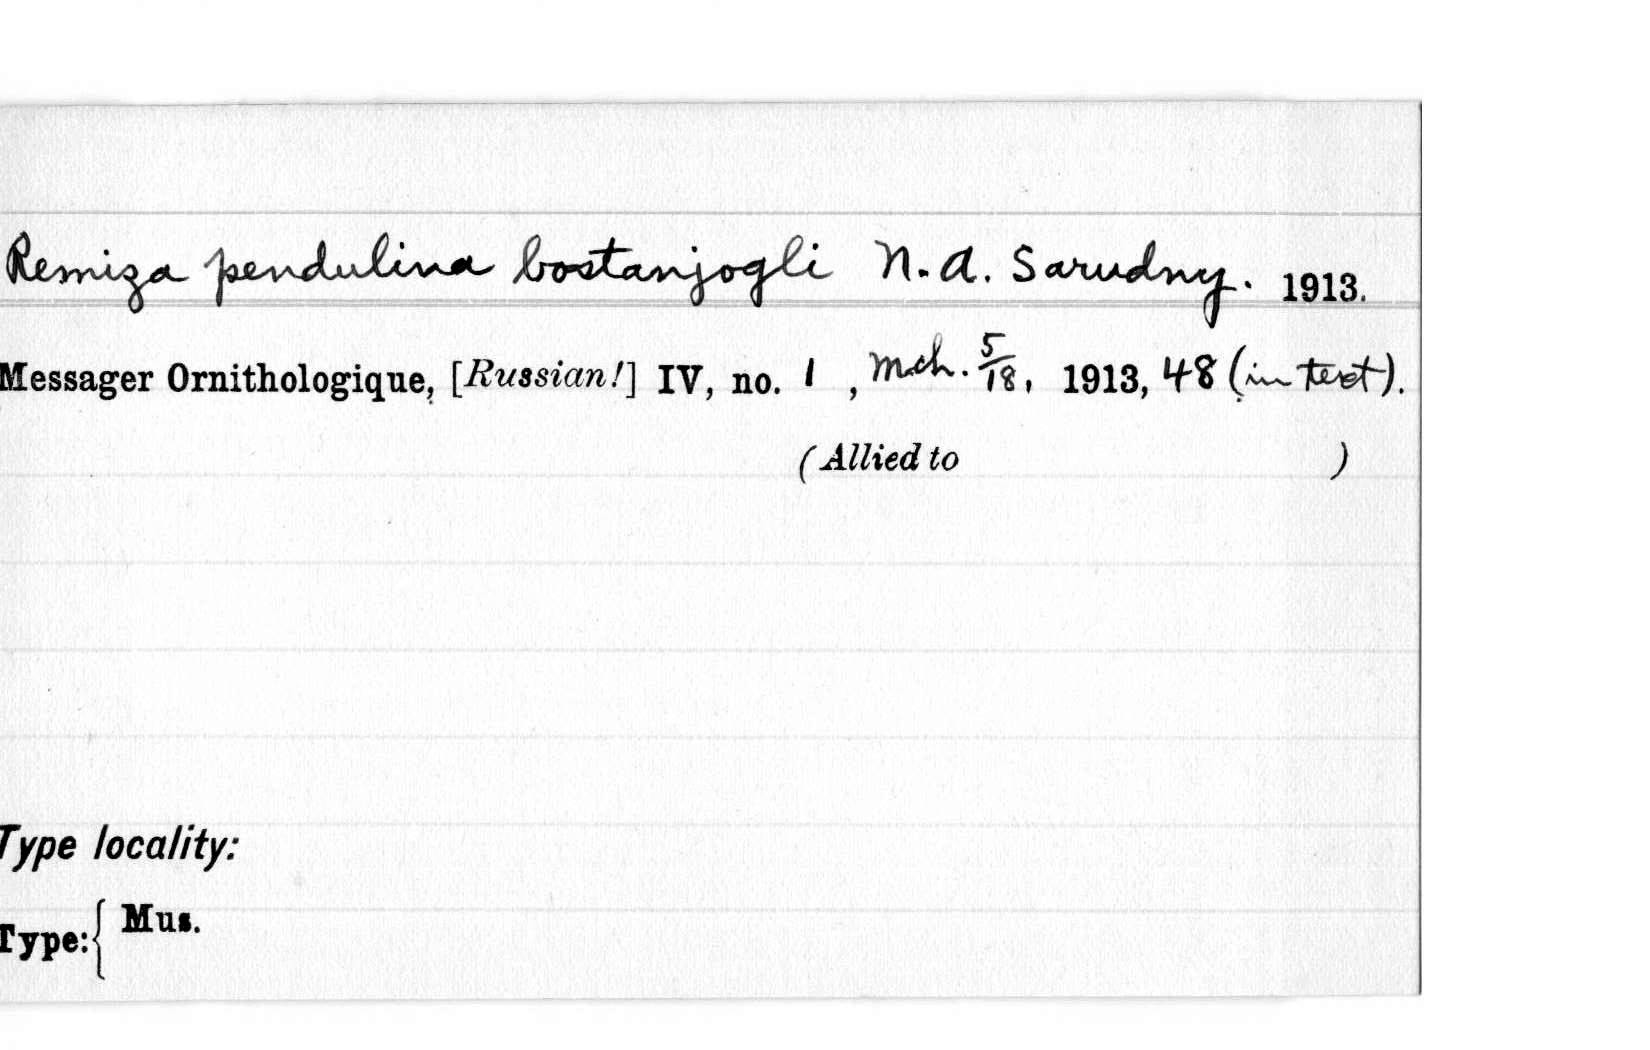 Remiza pendulina bostanjogli N. A. Sarudny. 1913.
Messager Ornithologique, [Russian!] IV, no. 1, mch. 5/18, 1913, 48 (in text).
(Allied to )
Type locality:
Type: { Mus.